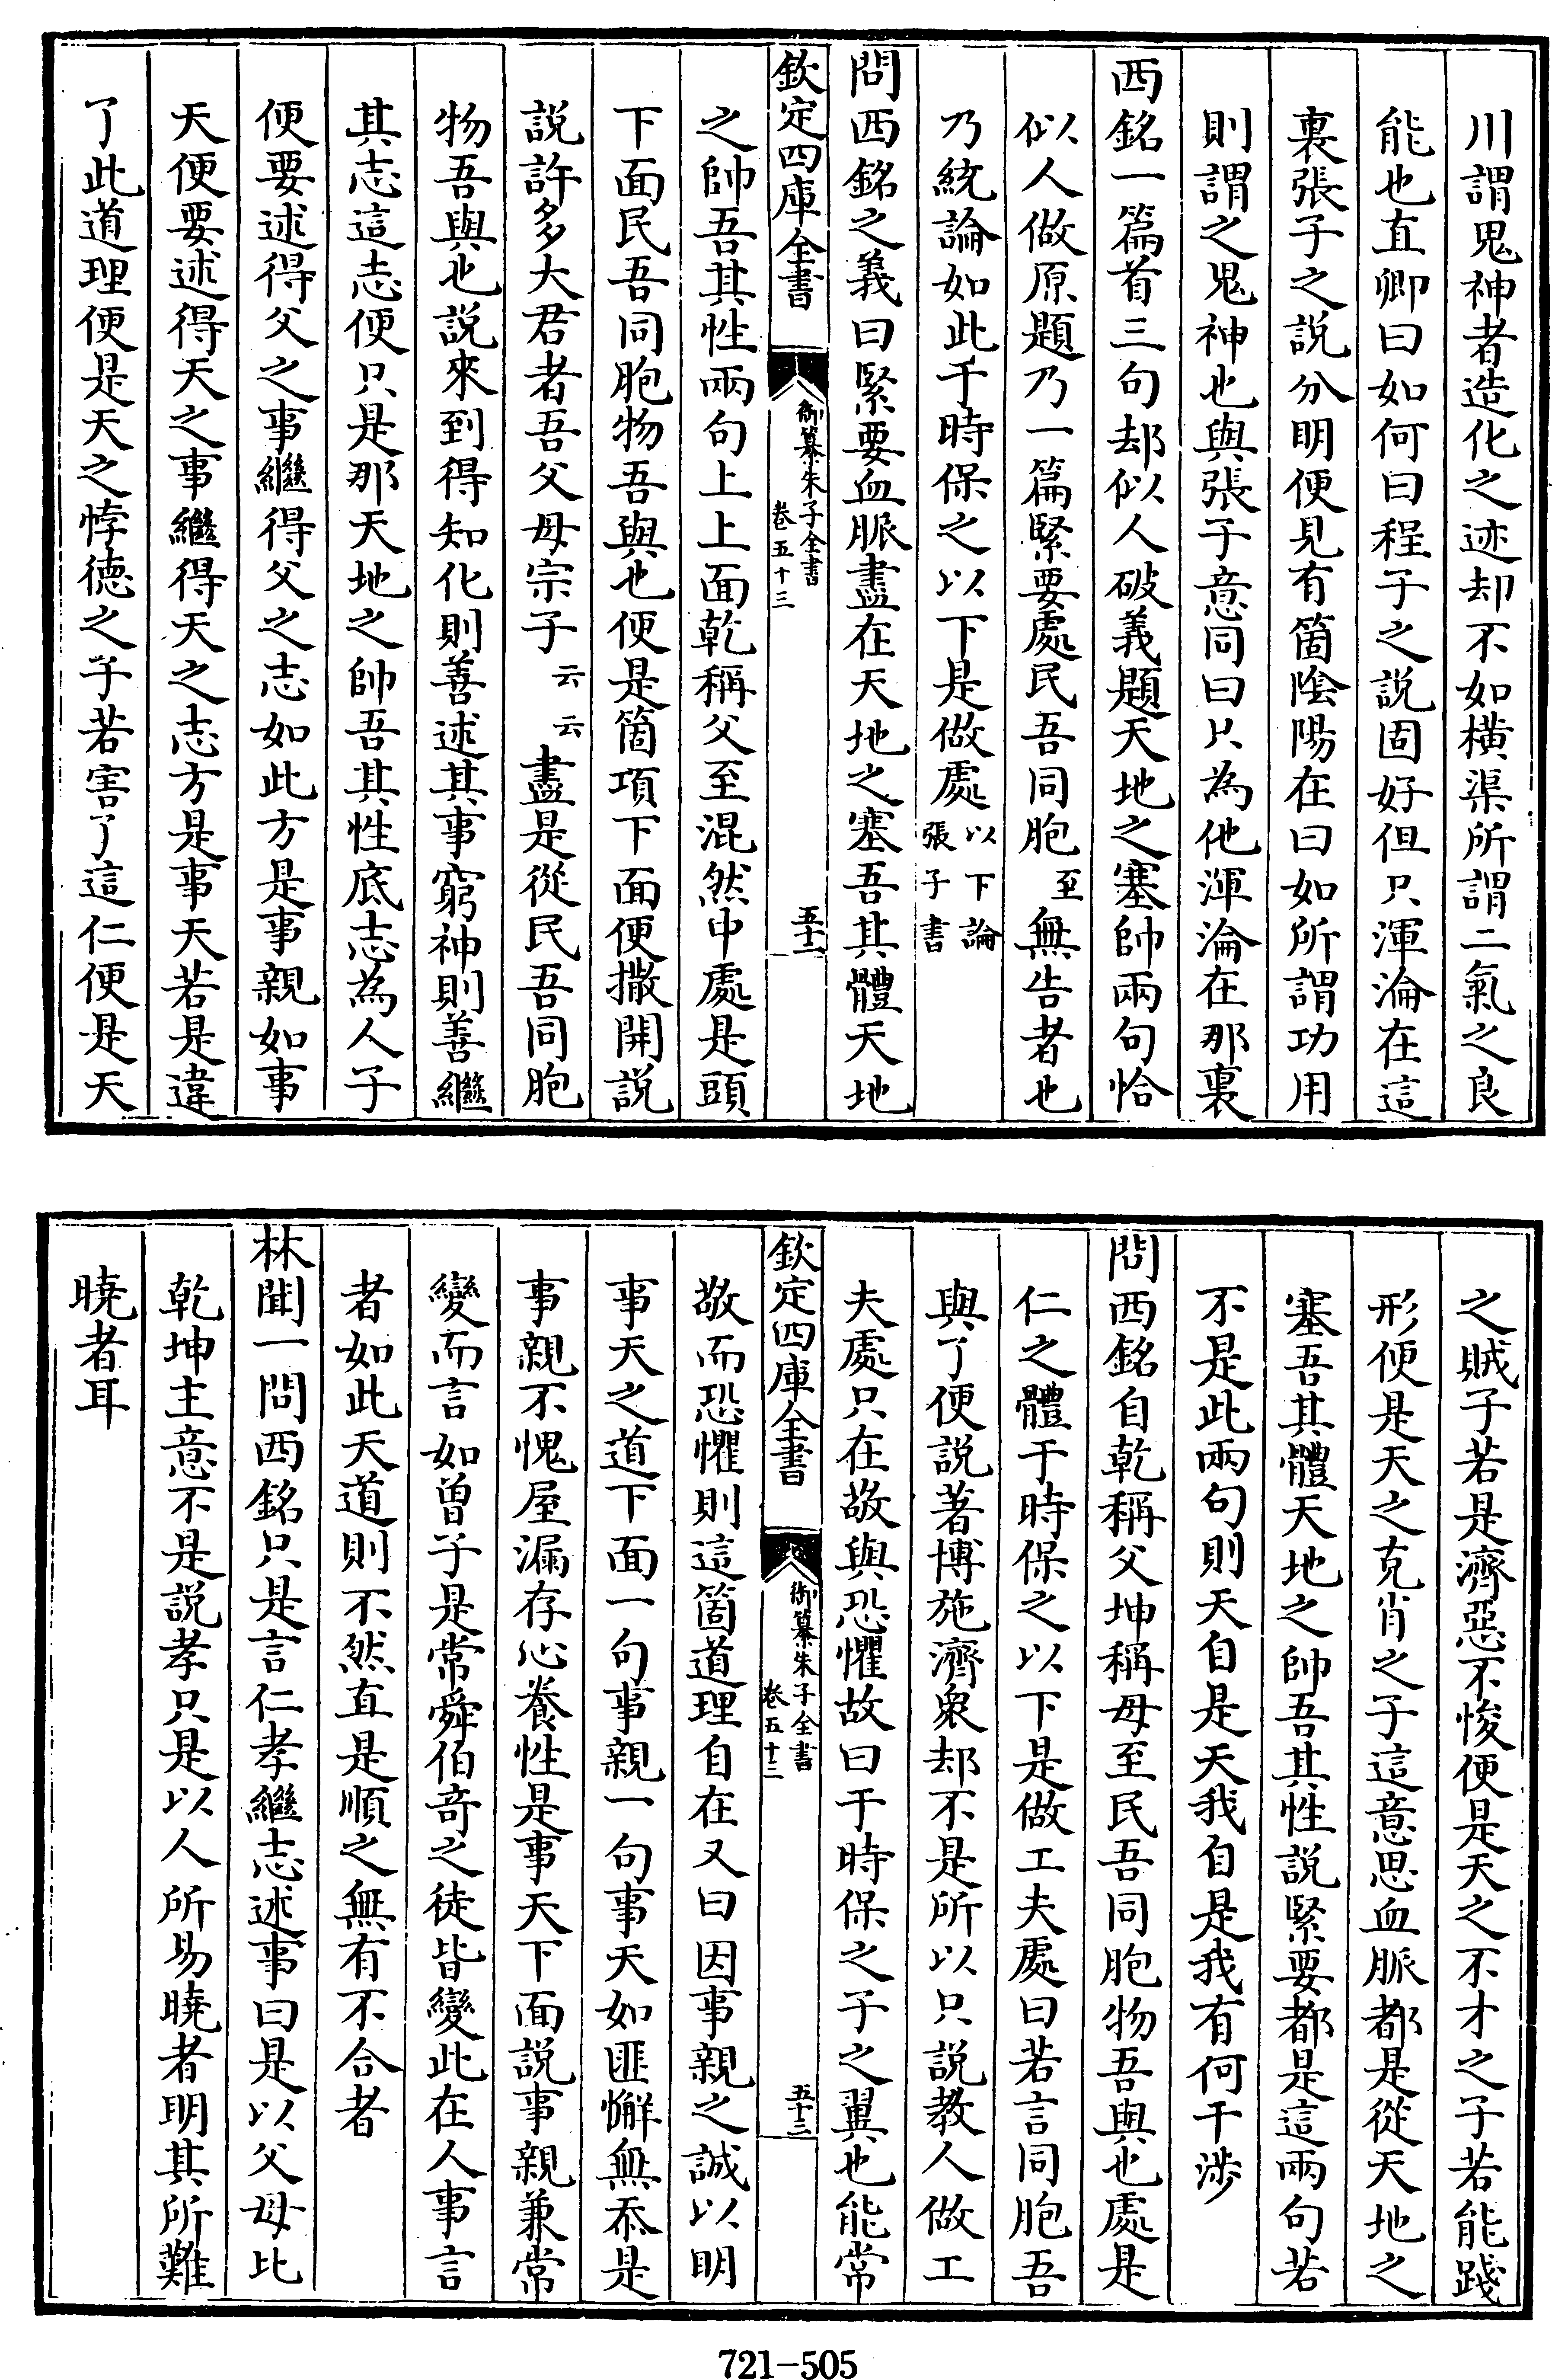 川謂鬼神者造化之迹却不如横渠所謂二氣之良
能也直卿曰如何曰程子之說固好但只渾淪在這
裏張子之說分明便見有箇陰陽在曰如所謂功用
則謂之鬼神也與張子意同曰只為他渾淪在那裏
西銘一篇首三句却似人破義題天地之塞帥兩句恰
似人做原題乃一篇緊要處民吾同胞至無告者也
乃統論如此于時保之以下是做處以下論張子書
問西銘之義曰緊要血脈盡在天地之塞吾其體天地
欽定四庫全書 御纂朱子全書 卷五十三 五十二
之帥吾其性兩句上上面乾稱父至混然中處是頭
下面民吾同胞物吾與也便是箇項下面便撒開說
說許多大君者吾父母宗子云云盡是從民吾同胞
物吾與也說來到得知化則善述其事窮神則善繼
其志這志便只是那天地之帥吾其性底志為人子
便要述得父之事繼得父之志如此方是事親如事
天便要述得天之事繼得天之志方是事天若是違
了此道理便是天之悖德之子若害了這仁便是天
之賊子若是濟惡不悛便是天之不才之子若能踐
形便是天之克肖之子這意思血脈都是從天地之
塞吾其體天地之帥吾其性說緊要都是這兩句若
不是此兩句則天自是天我自是我有何干涉
問西銘自乾稱父坤稱母至民吾同胞物吾與也處是
仁之體于時保之以下是做工夫處曰若言同胞吾
與了便說著博施濟衆却不是所以只說教人做工
夫處只在敬與恐懼故曰于時保之子之翼也能常
欽定四庫全書 御纂朱子全書 卷五十三 五十三
敬而恐懼則這箇道理自在又曰因事親之誠以明
事天之道下面一句事親一句事天如匪懈無忝是
事親不愧屋漏存心養性是事天下面說事親兼常
變而言如曾子是常舜伯奇之徒皆變此在人事言
者如此天道則不然直是順之無有不合者
林聞一問西銘只是言仁孝繼志述事曰是以父母比
乾坤主意不是說孝只是以人所易曉者明其所難
曉者耳
721-505